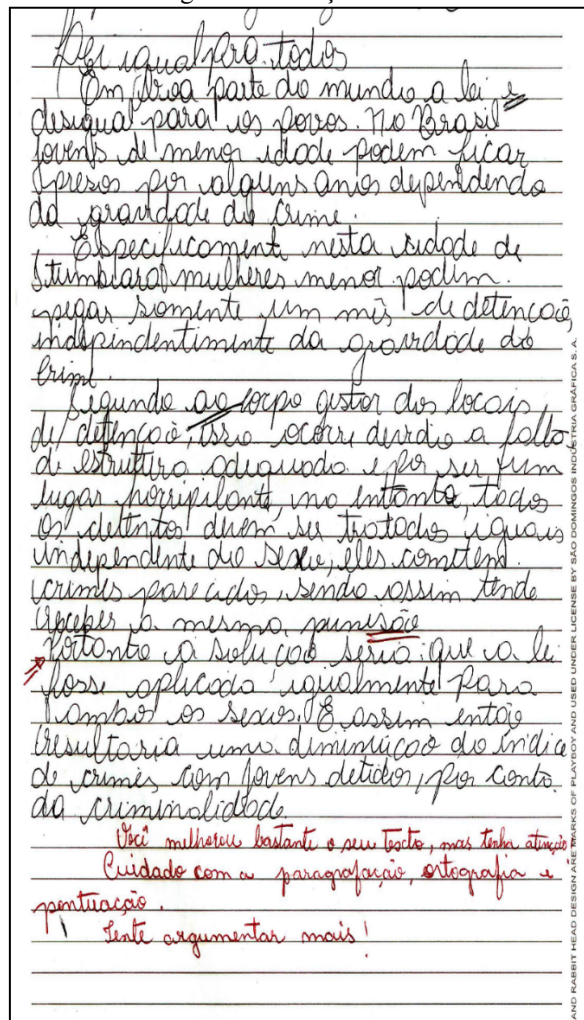 Lei igual pro todos
Em boa parte do mundo a lei é
desigual para os povos. No Brasil
jovens de menor idade podem ficar
presos por alguns anos dependendo
da gravidade do crime.
Especificamente nesta cidade de
Itumbiara mulheres menor podem
pegar somente um mês de detençaõ,
independentimente da gravidade do
crime.
Segundo ao corpo gestor dos locais
de detençaõ, isso ocorre devido a falta
de estrutura adequada e por ser um
lugar horripilante, no entanto, todos
os detentos devem ser tratados iguais
independente do sexo, eles cometem
crimes parecidos, sendo assim tende
receber a mesma punisão
Portanto a soluçaõ seria que a lei
fosse aplicada igualmente para
ambos os sexos. E assim então
resultaria uma diminuiçaõ do índice
de crimes com jovens detidos, por conta
da criminalidade.
Você melhorou bastante o seu texto, mas tenha atenção.
Cuidado com a paragrafação, ortografia e
pontuação.
Tente argumentar mais!
AND RABBIT HEAD DESIGN ARE MARKS OF PLAYBOY AND USED UNDER LICENSE BY SÃO DOMINGOS INDÚSTRIA GRÁFICA S.A.